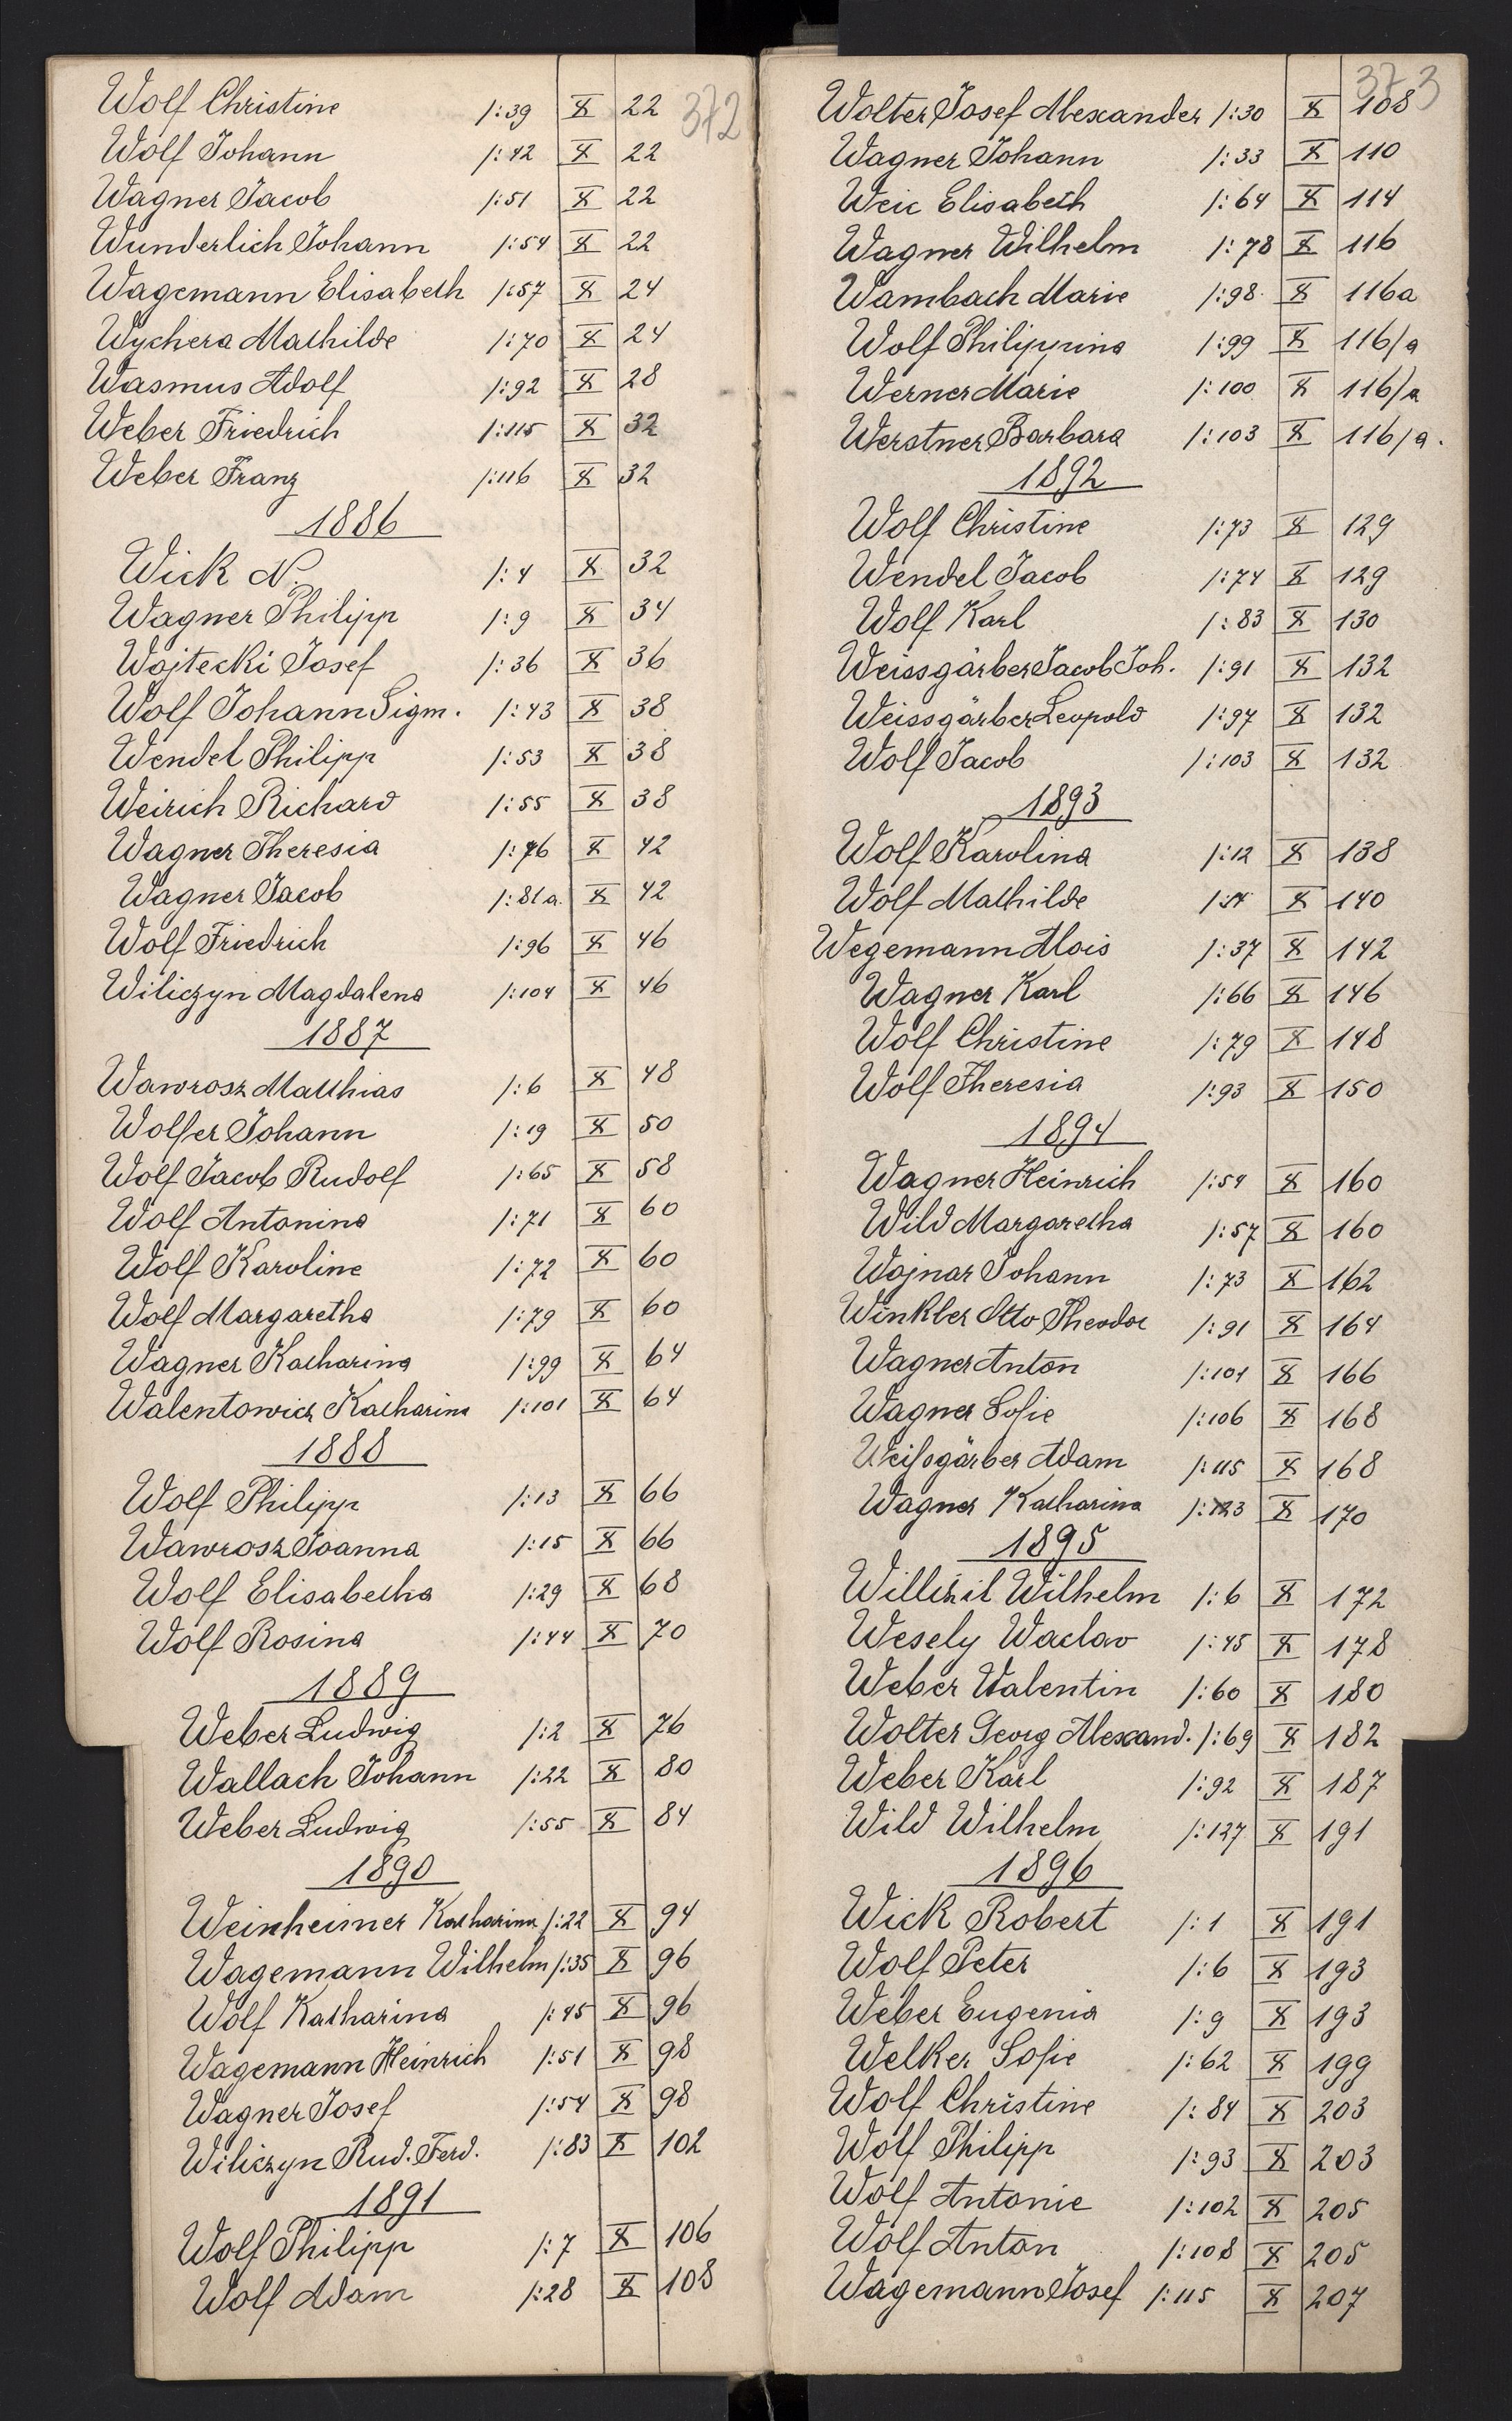 372
Wolf Christine /:39 X 22
Wolf Johann /:42 X 22
Wagner Jacob /:51 X 22
Wunderlich Johann /:54 X 22
Wagemann Elisabeth /:57 X 24
Wychera Mathilde /:70 X 24
Wasmus Adolf /:92 X 28
Weber Friedrich /:115 X 32
Weber Franz /:116 X 32
1886
Wick N. /:4 X 32
Wagner Philipp /:9 X 34
Wojtecki Josef /:36 X 36
Wolf Johann Sigm. /:43 X 38
Wendel Philipp /:53 X 38
Weirich Richard /:55 X 38
Wagner Theresia /:76 X 42
Wagner Jacob /:81a. X 42
Wolf Friedrich /:96 X 46
Wiliczyn Magdalena /:104 X 46
1887
Wawrosz Matthias /:6 X 48
Wolfer Johann /:19 X 50
Wolf Jacob Rudolf /:65 X 58
Wolf Antonina /:71 X 60
Wolf Karoline /:72 X 60
Wolf Margaretha /:79 X 60
Wagner Katharina /:99 X 64
Walentowicz Katharina /:101 X 64
1888
Wolf Philipp /:13 X 66
Wawrosz Joanna /:15 X 66
Wolf Elisabetha /:29 X 68
Wolf Rosina /:44 X 70
1889
Weber Ludwig /:2 X 76
Wallach Johann /:22 X 80
Weber Ludwig /:55 X 84
1890
Weinheimer Katharina /:22 X 94
Wagemann Wilhelm /:35 X 96
Wolf Katharina /:45 X 96
Wagemann Heinrich /:51 X 98
Wagner Josef /:54 X 98
Wiliczyn Rud. Ferd. /:83 X 102
1891
Wolf Philipp /:7 X 106
Wolf Adam /:28 X 108
373
Wolter Josef Alexander /:30 X 108
Wagner Johann /:33 X 110
Weic Elisabeth /:64 X 114
Wagner Wilhelm /:78 X 116
Wambach Marie /:98. X 116a
Wolf Philippina /:99 X 116/a
Werner Marie /:100 X 116/a
Werstner Barbara /:103 X 116/a.
1892
Wolf Christine /:73 X 129
Wendel Jacob /:74 X 129
Wolf Karl /:83 X 130
Weissgärber Jacob Joh. /:91 X 132
Weissgärber Leopold /:97 X 132
Wolf Jacob /:103 X 132
1893
Wolf Karolina /:12 X 138
Wolf Mathilde X 140
Wegemann Alois /:37 X 142
Wagner Karl /:66 X 146
Wolf Christine /:79 X 148
Wolf Theresia /:93 X 150
1894
Wagner Heinrich /:54 X 160
Wild Margaretha /:57 X 160
Wojnar Johann /:73 X 162
Winkler Otto Theodor /:91 X 164
Wagner Anton /:101 X 166
Wagner Sofie /:106 X 168
Weißgärber Adam /:115 X 168
Wagner Katharina /:123 X 170
1895
Wilhelm /:6 X 172
Wesely Waclav /:45 X 178
Weber Walentin /:60 X 180
Wolter Georg Alexand. /:69 X 182
Weber Karl /:92 X 187
Wild Wilhelm /:127 X 191
1896
Wick Robert /:1 X 191
Wolf Peter /:6 X 193
Weber Eugenia /:9 X 193
Welker Sofie /:62 X 199
Wolf Christine /:84 X 203
Wolf Philipp /:93 X 203
Wolf Antonie /:102 X 205
Wolf Anton /:108 X 205
Wagemann Josef /:115 X 207